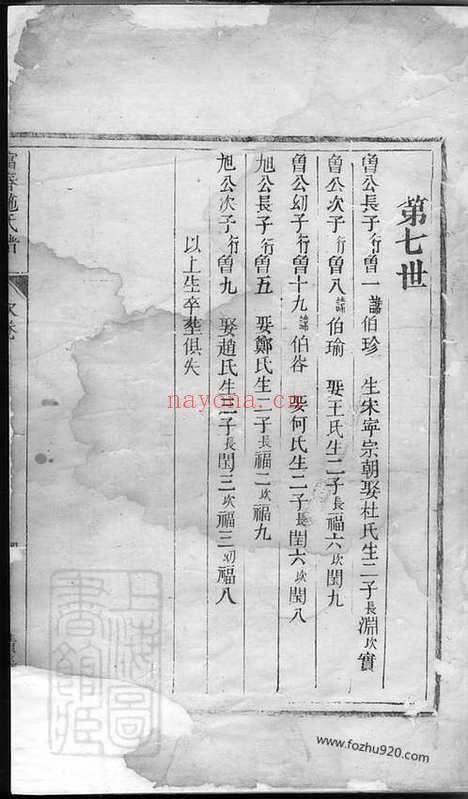 第七世
曾公長子行曾一諱伯珍　生宋寜宗朝娶杜氏生二子長淵次實
曾公次子行曾八諱伯瑜　娶王氏生二子長福六次閏九
曾公㓜子行曾十九諱伯谷　娶何氏生二子長閏六次閏八
旭公長子行曾五　娶鄭氏生二子長福二次福九
旭公次子行曾九　娶趙氏生三子長閏三次福三㓜福八
以上生卒塟俱失
富春施氏譜
上海圖書館藏
nayona.cn
www.fozhu920.com